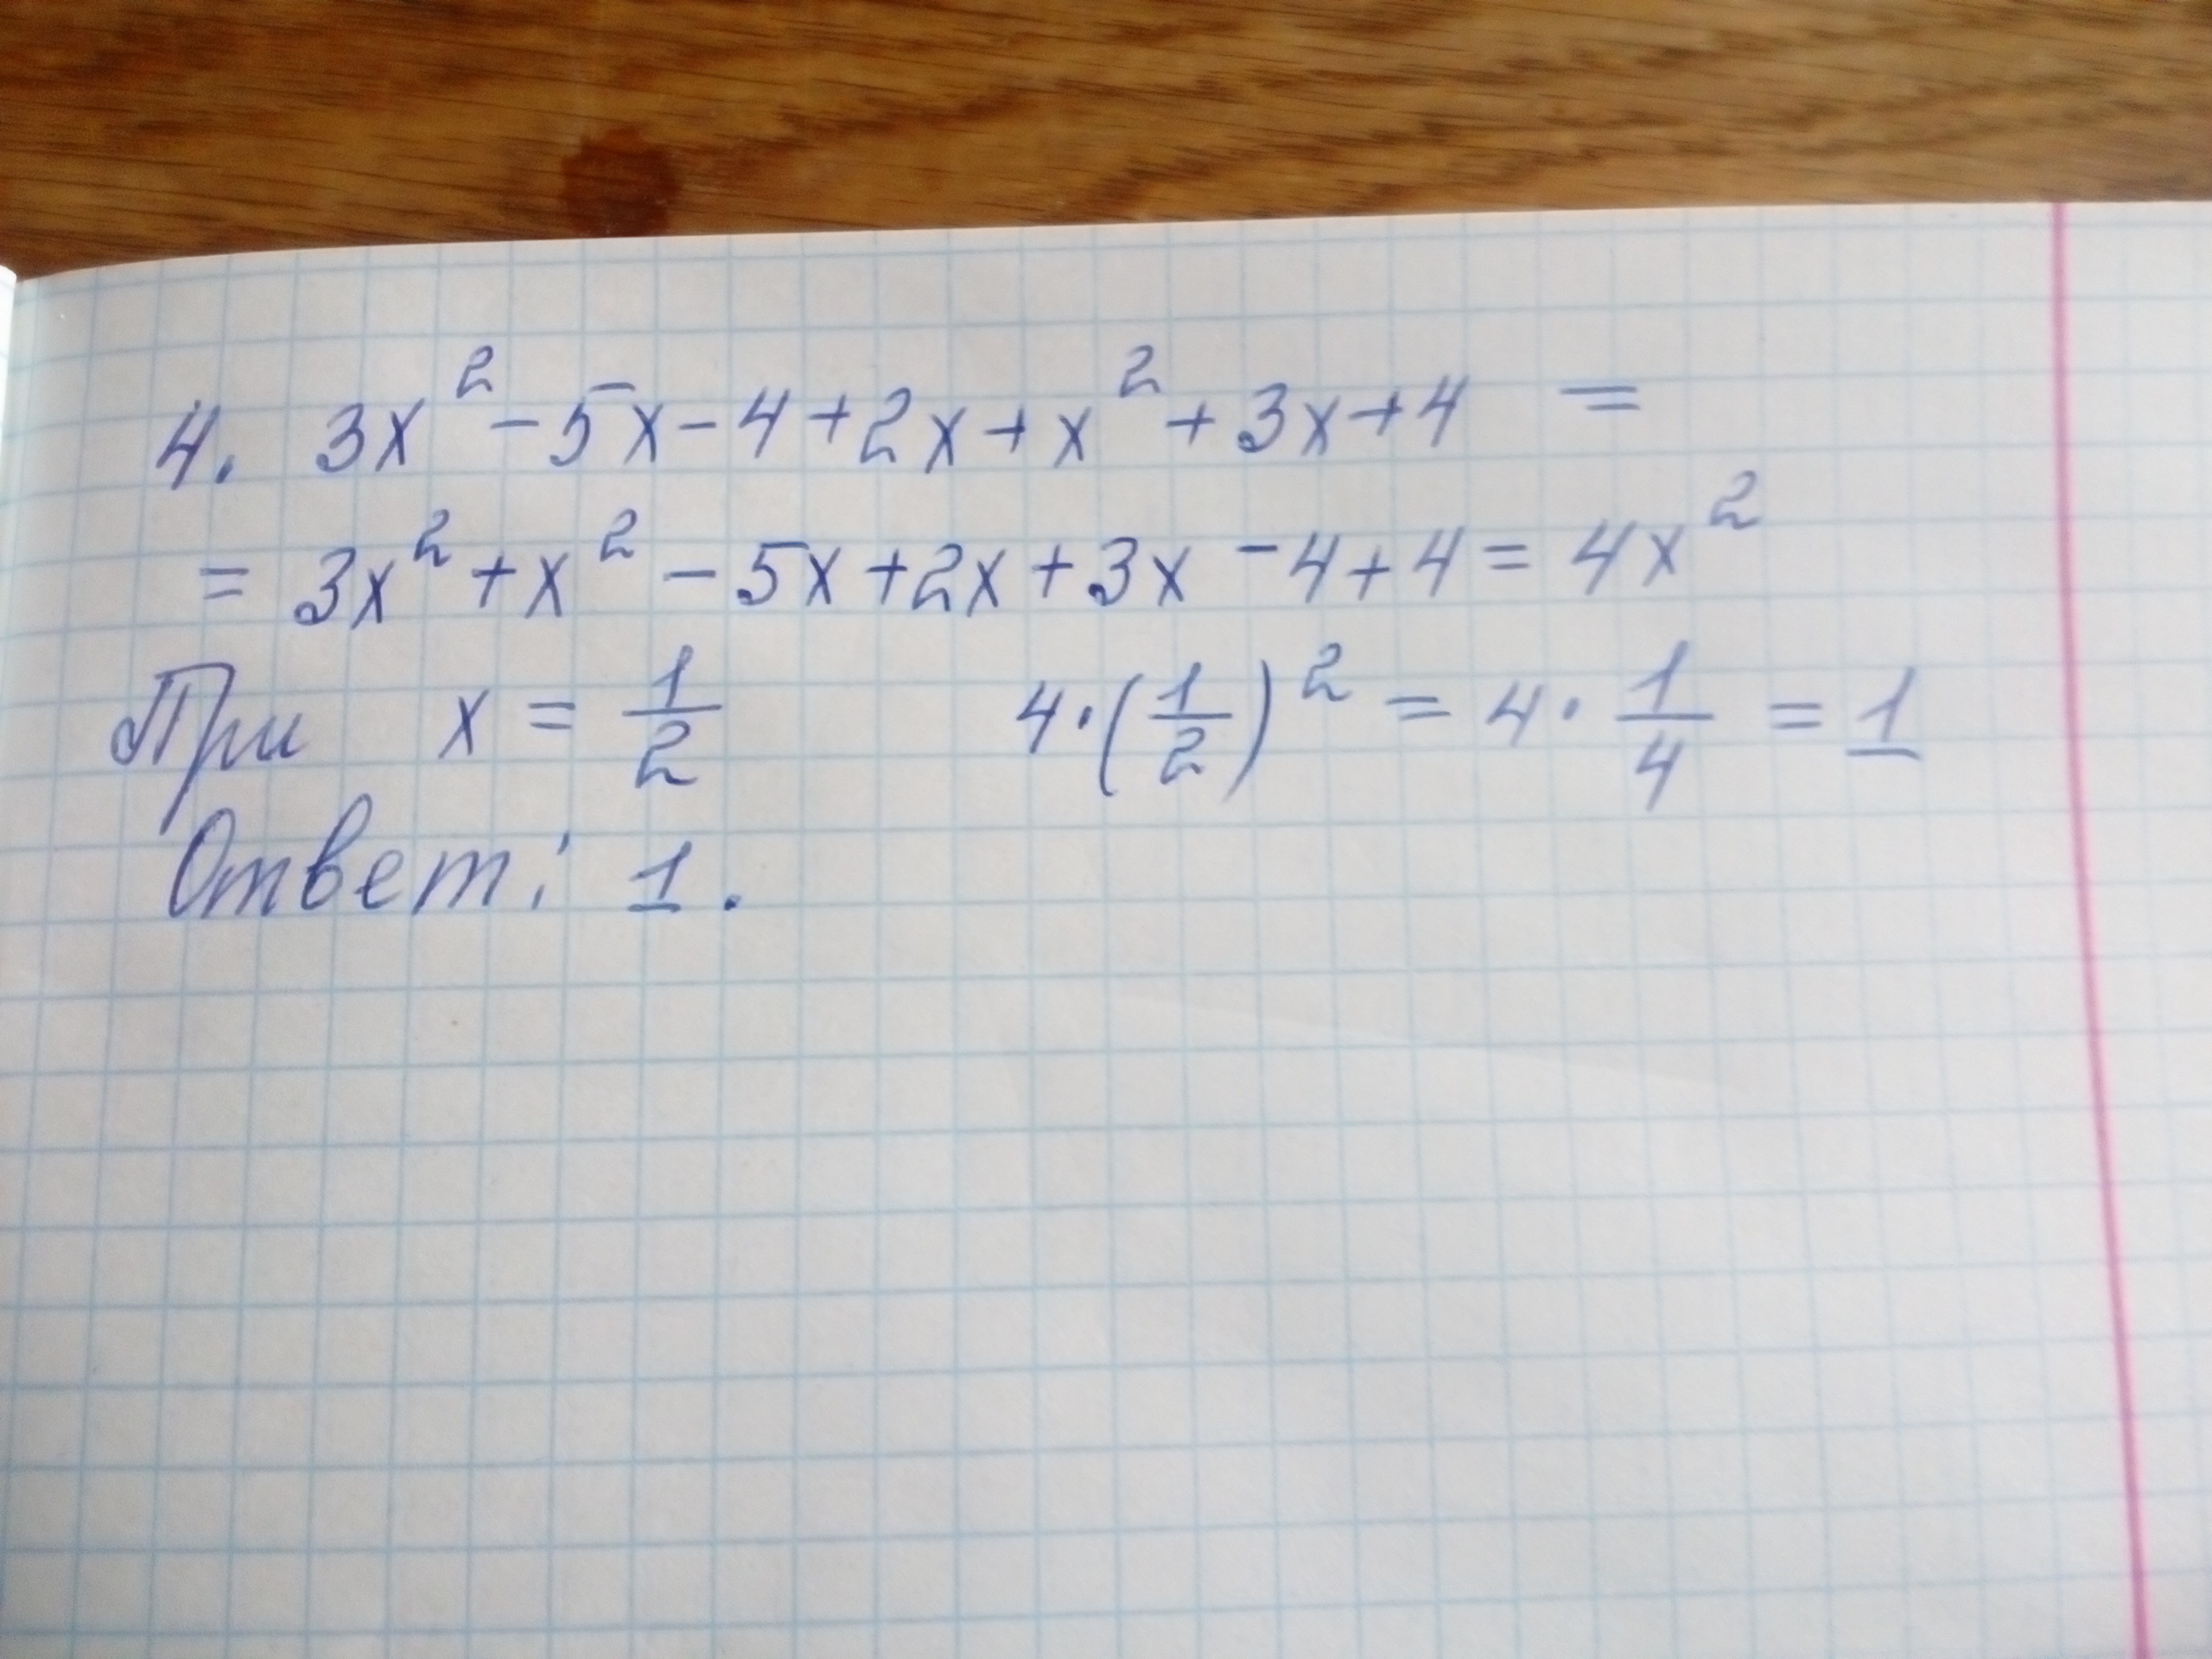 4. 3x² - 5x - 4 + 2x + x² + 3x + 4 =
= 3x² + x² - 5x + 2x + 3x - 4 + 4 = 4x²
При x = 1/2 4·(1/2)² = 4·1/4 = 1
Ответ: 1.